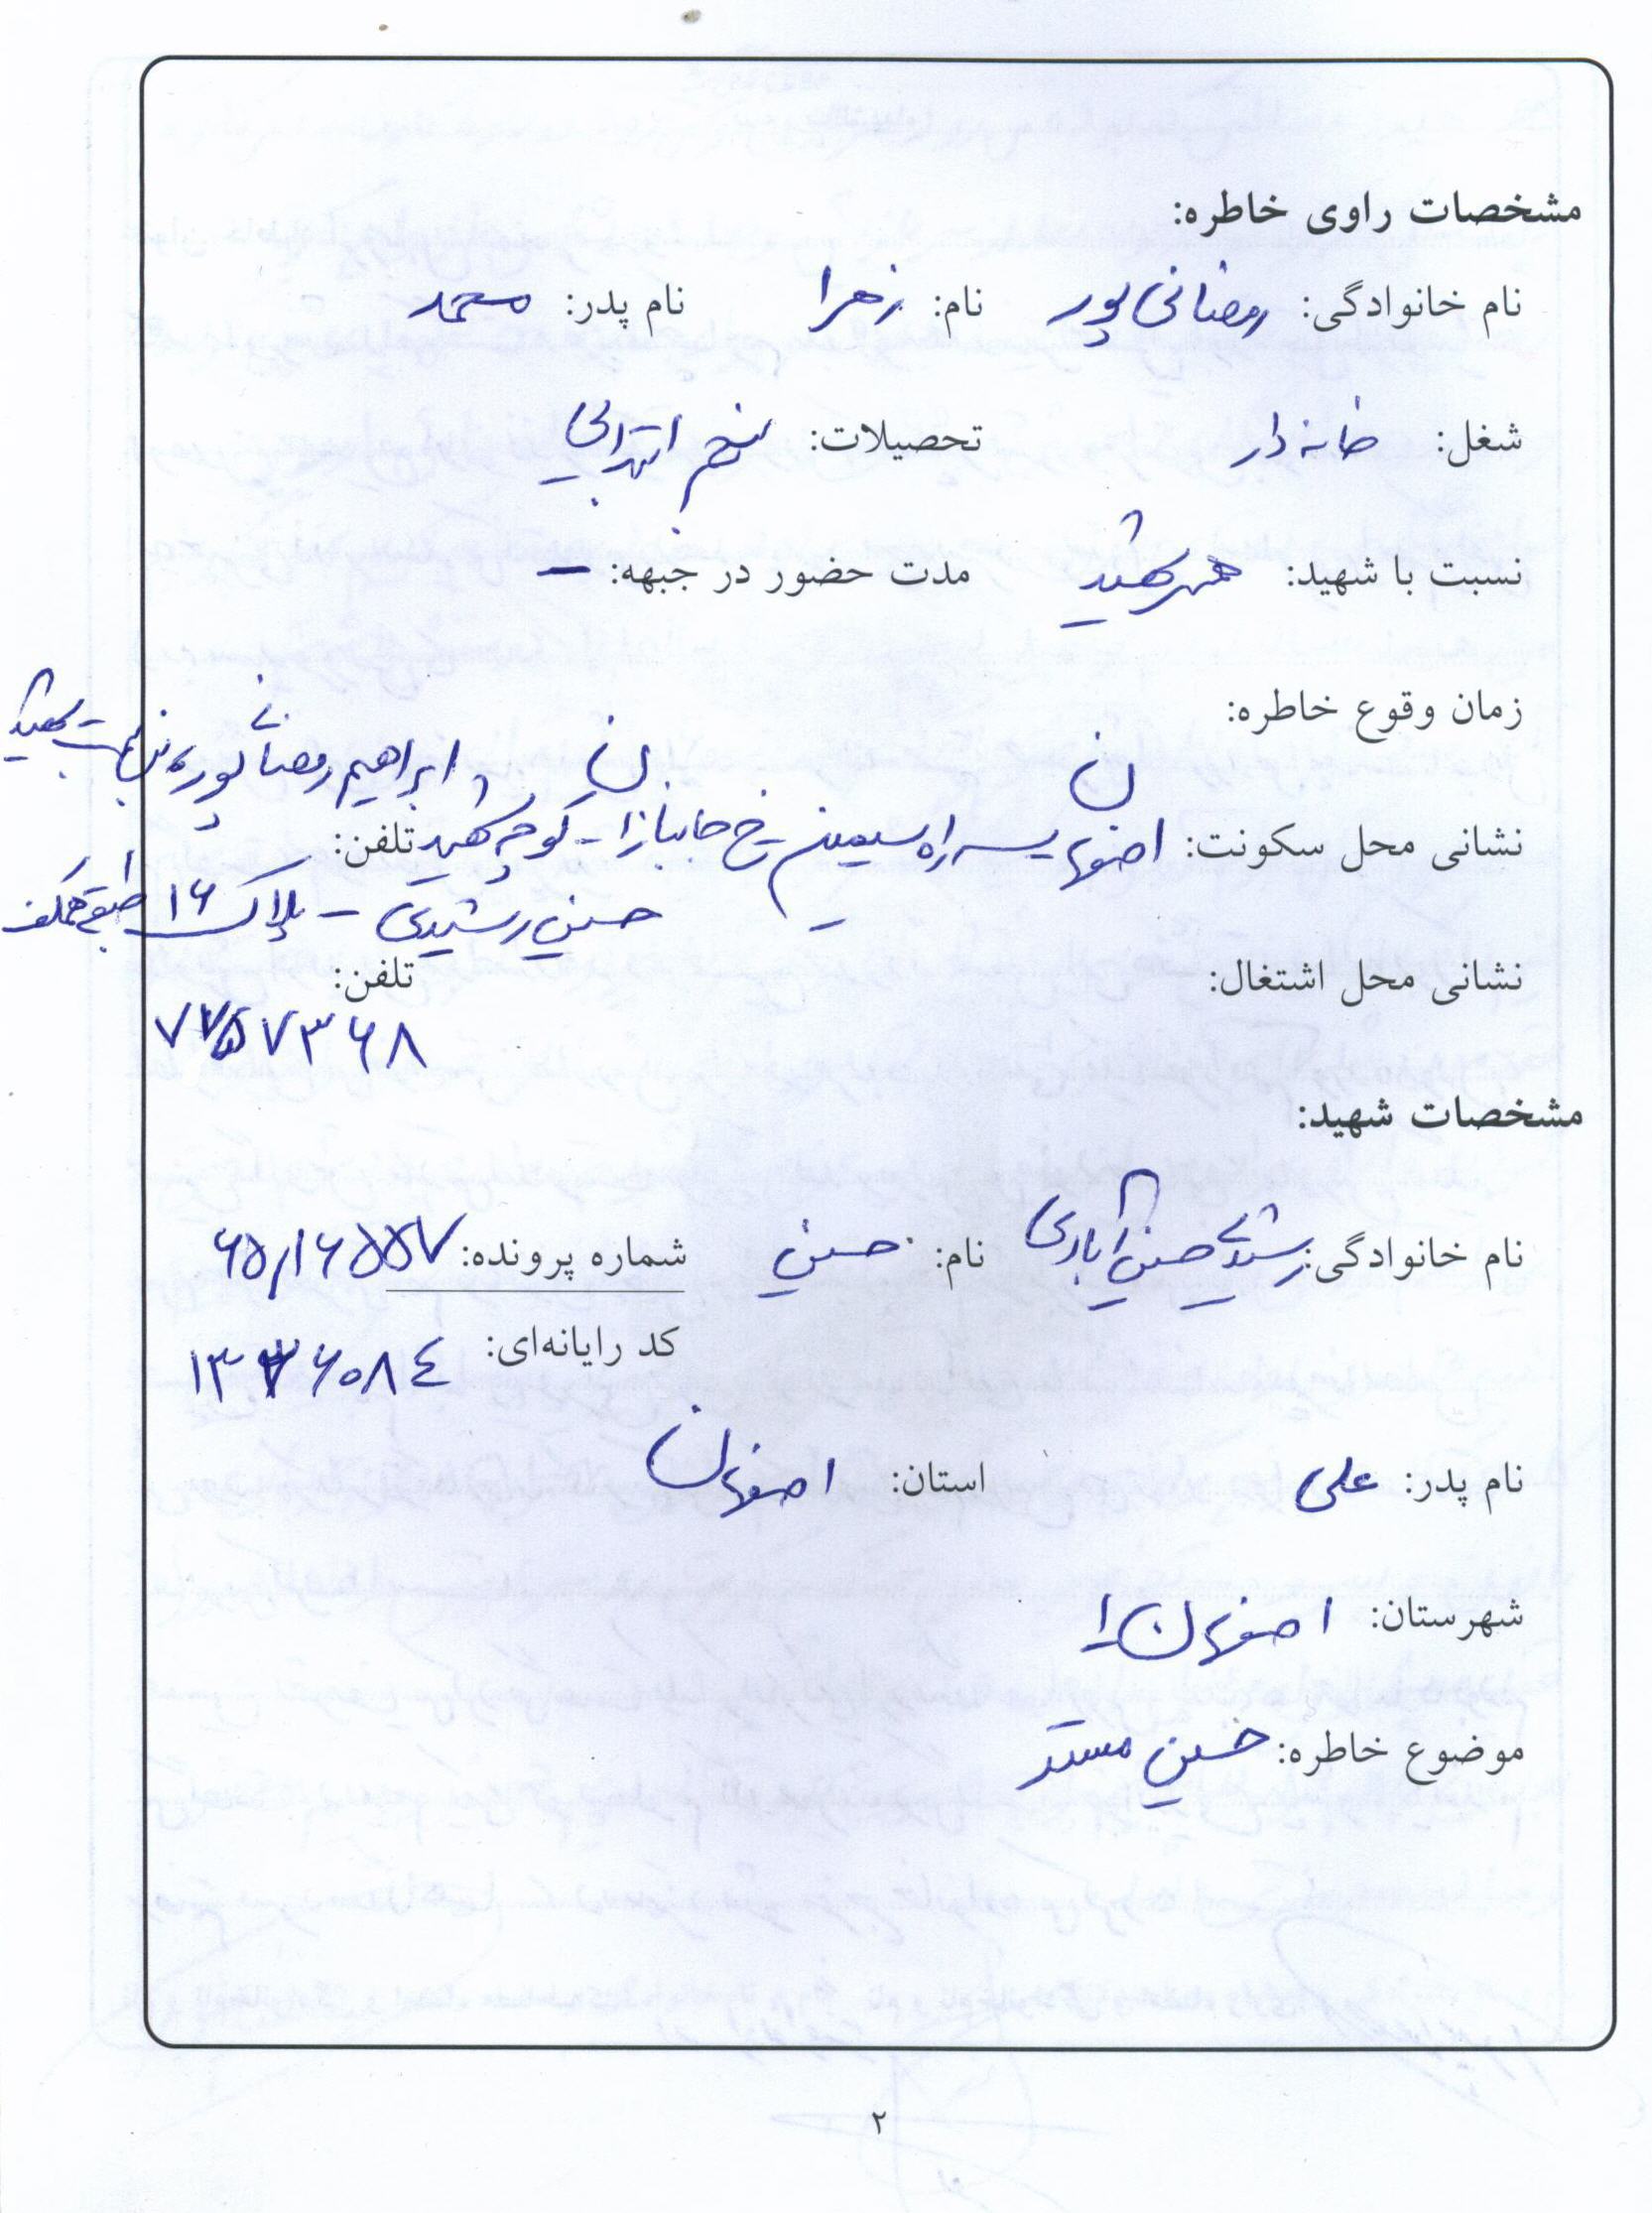 مشخصات راوی خاطره:
نام خانوادگی: رمضانی پور نام: زهرا نام پدر: محمد
شغل: خانه دار تحصیلات: پنجم ابتدایی
نسبت با شهید: همسر شهید مدت حضور در جبهه: —
زمان وقوع خاطره:
شهید ابراهیم رمضانی پور
نشانی محل سکونت: اصفهان سه راه سیمین خ جانبازان - کوچه شهید تلفن:
حسین رشیدی - پلاک ۱۶ طبقه همکف
نشانی محل اشتغال: تلفن:
۷۷۵۷۳۶۸
مشخصات شهید:
نام خانوادگی: رشیدی حسین آبادی نام: حسین شماره پرونده: ۶۵/۱۶۵۵۷
کد رایانه‌ای: ۱۳۳۶۰۸۴
نام پدر: علی استان: اصفهان
شهرستان: اصفهان
موضوع خاطره: حسین
۲